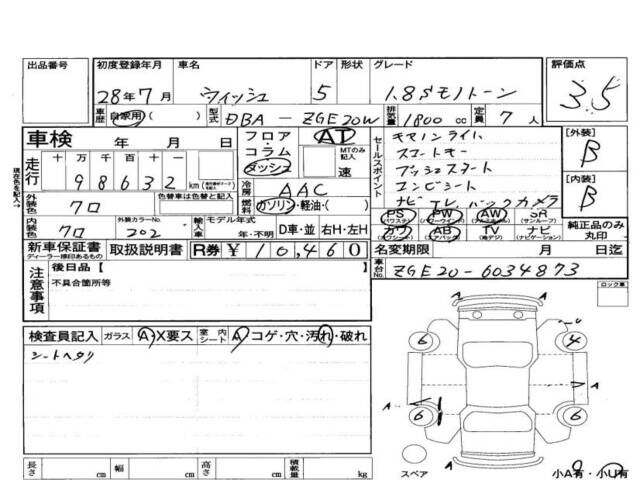 出品番号 初度登録年月 車名 ドア 形状 グレード 評価点
28年7月 ウィッシュ 5 1.8Sモノトーン 3.5
車歴 自家用( ) 型式 DBA-ZGE20W 排気量 1800 cc 定員 7 人
車検 年 月 日 フロア・コラム・ダッシュ AT MTのみ記入 速
セールスポイント
キセノンライト
スマートキー
プッシュスタート
コンビシート
ナビ TV バックカメラ
[外装] B
[内装] B
走行 十 万 千 百 十 一
98632 km
現在の色を記入
冷房 AAC
外装色 クロ 色替車は色替と記入 燃料 ガソリン・軽油・( )
PS (パワステ) PW (パワーウィンド) AW (アルミホイル) SR (サンルーフ)
革 (カワシート) AB (エアバッグ) TV (地デジ) ナビ (ナビゲーション)
純正品のみ丸印
内装色 クロ 外装カラーNo. 202 輸入車 モデル年式 年・不明 D車・並 右H・左H
新車保証書 ディーラー捺印あるもの 取扱説明書 R券 ¥10,460 名変期限 月 日迄
注意事項 後日品【
不具合箇所等
車台No. ZGE20-6034873
ロック車
検査員記入 ガラス A・X要ス 室内シート A コゲ・穴・汚れ・破れ
シートヘタリ
A
6 4
A A
6 6
A
スペア 小A有・小U有
長さ cm 幅 cm 高さ cm 積載量 kg